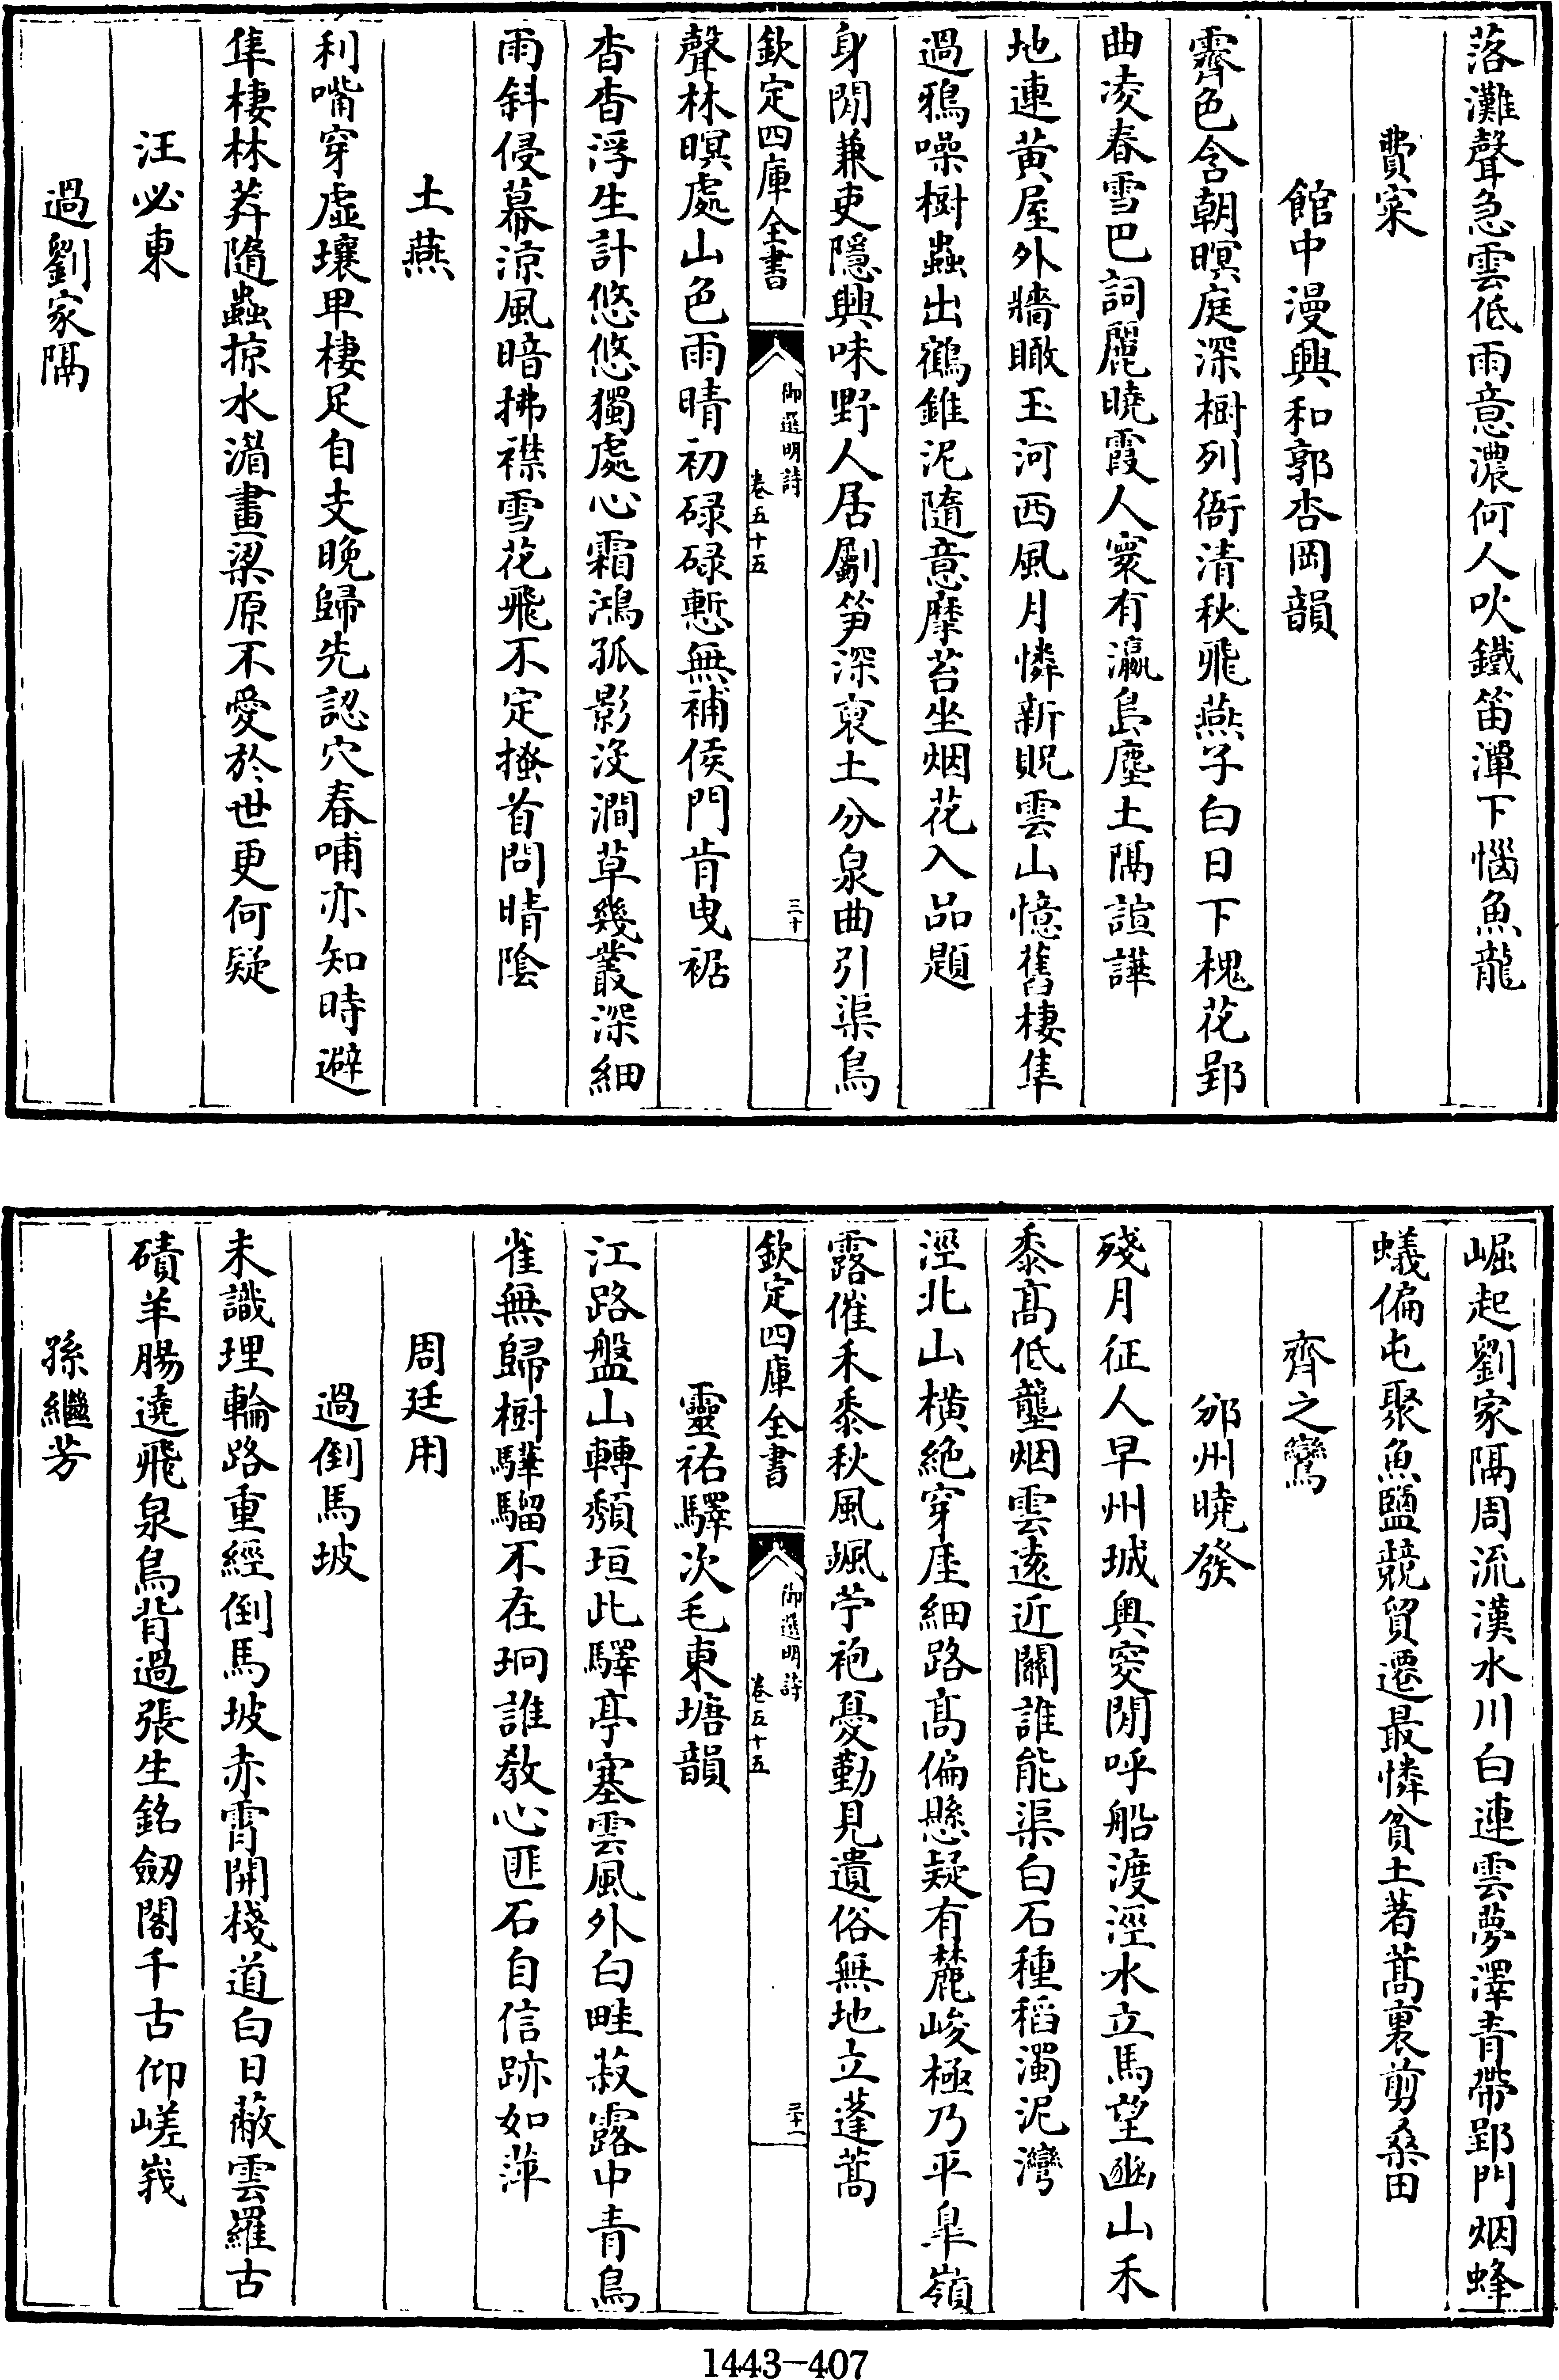 落灘聲急雲低雨意濃何人吹鐵笛潭下惱魚龍
費寀
館中漫興和郭杏岡韻
霽色含朝暝庭深樹列衙清秋飛燕子白日下槐花郢
曲凌春雪巴詞麗曉霞人寰有瀛島塵土隔諠譁
地連黄屋外牆瞰玉河西風月憐新貺雲山憶舊棲隼
過鴉噪樹蟲出鶴錐泥隨意摩苔坐烟花入品題
身閒兼吏隱興味野人居斸笋深裒土分泉曲引渠鳥
欽定四庫全書
御選明詩
卷五十五
三十
聲林暝處山色雨晴初碌碌慙無補侯門肯曳裾
杳杳浮生計悠悠獨處心霜鴻孤影没澗草幾叢深細
雨斜侵幕涼風暗拂襟雪花飛不定搔首問晴陰
土燕
利嘴穿虚壤卑棲足自支晚歸先認穴春哺亦知時避
隼棲林莽隨蟲掠水湄畫梁原不愛於世更何疑
汪必東
過劉家隔
崛起劉家隔周流漢水川白連雲夢澤青帶郢門烟蜂
蟻偏屯聚魚鹽競貿遷最憐貧土著蒿裏剪桑田
齊之鸞
邠州曉發
殘月征人早州城奥窔閒呼船渡涇水立馬望豳山禾
黍髙低壟烟雲遠近關誰能渠白石種稻濁泥灣
涇北山横絶穿厓細路髙偏懸疑有麓峻極乃平臯嶺
露催禾黍秋風颯苧袍憂勤見遺俗無地立蓬蒿
欽定四庫全書
御選明詩
卷五十五
三十一
靈祐驛次毛東塘韻
江路盤山轉頽垣此驛亭塞雲風外白畦菽露中青鳥
雀無歸樹驊騮不在坰誰教心匪石自信跡如萍
周廷用
過倒馬坡
未識理輪路重經倒馬坡赤霄開棧道白日蔽雲羅古
磧羊腸遶飛泉鳥背過張生銘劒閣千古仰嵯峩
孫繼芳
1443-407